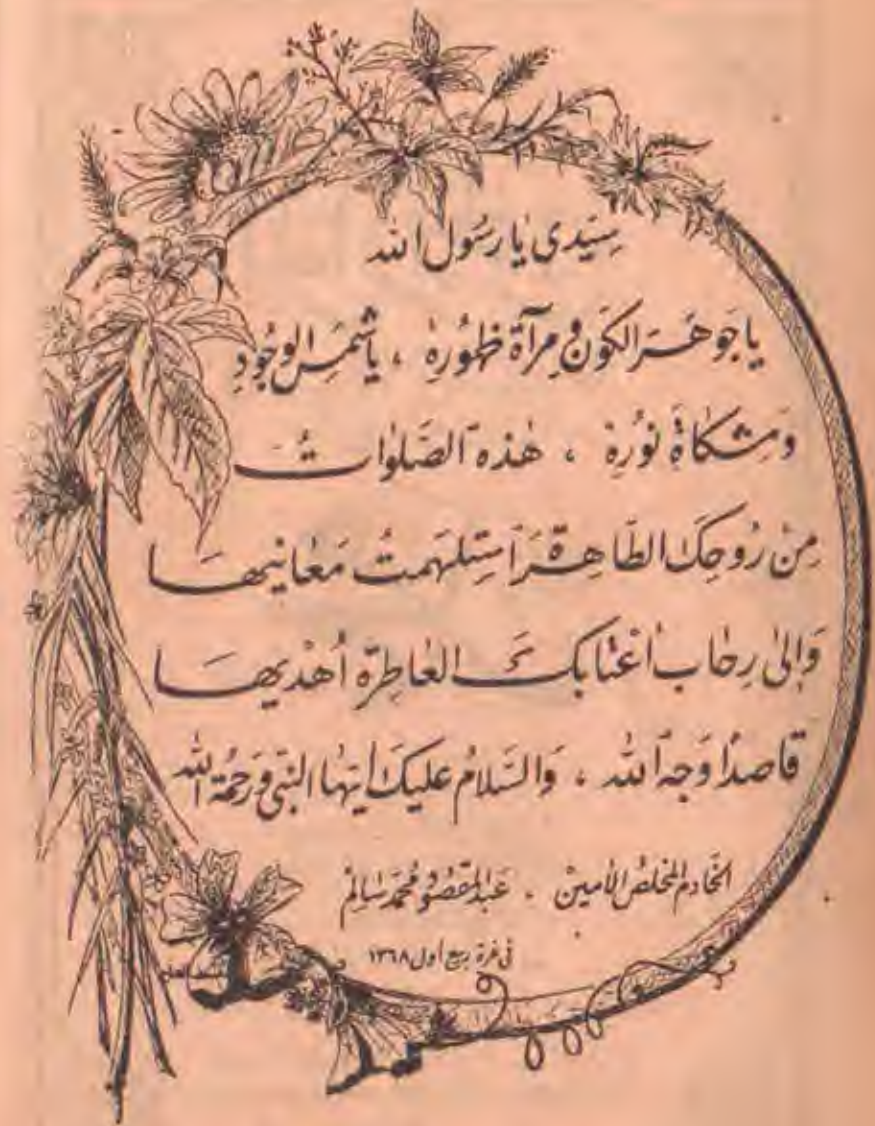 سيّدى يا رسُول الله
يا جَوهَر الكَون ومِرآة ظهُورهِ ، يا شَمسَ الوجُودِ
ومِشكاة نُورهِ ، هٰذه الصَّلوات
مِن رُوحِكَ الطَّاهِرَة استلهمتُ مَعانيها
وَإلىٰ رِحَاب أعْتابكَ العَاطِرَة أهديها
قاصدًا وَجه الله ، وَالسَّلامُ عليكَ أيّها النبّى وَرَحمَة الله
الخَادم المخلصُ الأمين . عَبدالمقصُود محمّد سَالِم
فى غرة ربيع أول ١٣٦٨